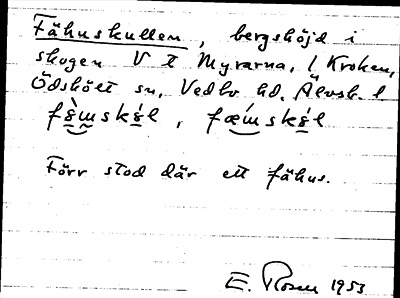 Fähuskullen, bergshöjd i
skogen V I Myrarna, l Kroken,
Ödskölt sn, Vedbo hd, Älvsb. l
Förr stod där ett fähus.
E. Rosen 1953